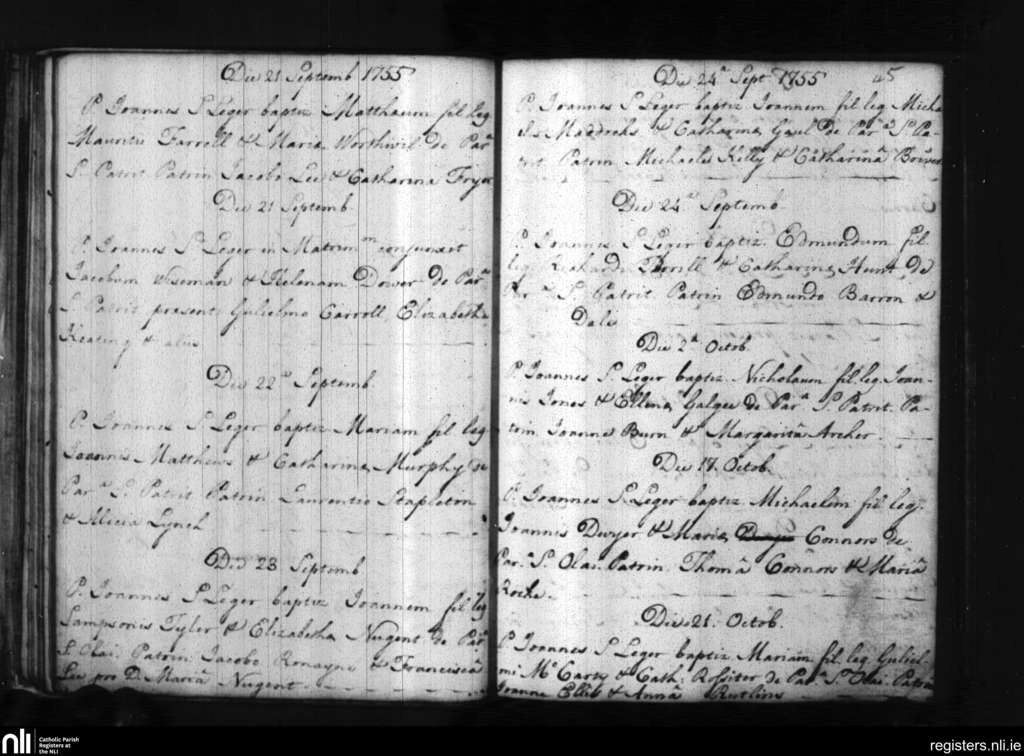 Die 21 Septemb 1755
P. Joannes St Leger baptiz. Matthaeum fil. leg.
Mauritii Farrell & Maria Worthivil de Par.a
S. Patrit. Patrin. Jacobo Lee & Catharina Fryer
Die 21 Septemb.
P. Joannes St Leger in Matrimon conjunxit
Jacobum Wiseman & Helenam Dower de Par.a
S. Patrit. present. Gulielmo Carroll, Elizabetha
Keating & aliis
Die 22.a Septemb.
P. Joannes St Leger baptiz. Mariam fil. leg.
Joannis Matthews & Catharina Murphy de
Par.a St. Patrit. Patrin. Laurentio Stapleton
& Alicia Lynch
Die 23 Septemb
P. Joannes St Leger baptiz. Joannem fil. leg.
Sampsonis Tyler & Elizabetha Nugent de Par.a
S. Olai. Patrin. Jacobo Ronayne & Franciscâ
Lee pro D. Maria Nugent.
Die 24.a Sept. 1755
45
P. Joannes St Leger baptiz. Joannem fil. leg. Micha
elis Maddocks & Catharina Gaul de Par.a St Pa-
trit. Patrin. Michaelis Kelly & Catharinâ Bower
Die 24.a Septemb.
P. Joannes St Leger baptiz. Edmundum fil.
leg. Richardi & Catharina Hunt de
Par.a St. Patrit. Patrin Edmundo Barron &
Dale
Die 2.a Octob.
P. Joannes St. Leger baptiz. Nicholaum fil. leg. Joan-
nis Jones & Ellena Galgee de Par.a S. Patrit. Pa-
trin. Joanne Burn & Margaritâ Archer.
Die 17. Octob.
P. Joannes St Leger baptiz. Michaelem fil. leg.
Joannis Dwyer & Maria Connors de
Par.a St. Olai. Patrin. Thomâ Connors & Mariâ
Roche.
Die 21. Octob.
P. Joannes St Leger baptiz. Mariam fil. leg. Guliel-
mi Mc Carty & Cath: Rossiter de Par.a St. Olai. Patrin
Joanne Ellis & Annâ
nli
Catholic Parish
Registers at
the NLI
registers.nli.ie